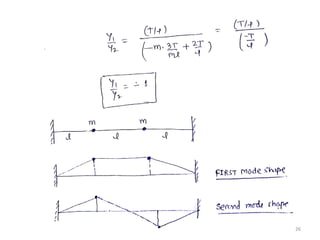 y1/y2 = (T/l) / (-m. 3T/ml + 2T/l) = (T/l) / (-T/l)
y1/y2 = -1
m m
l l l
FIRST mode shape
Second mode shape
26